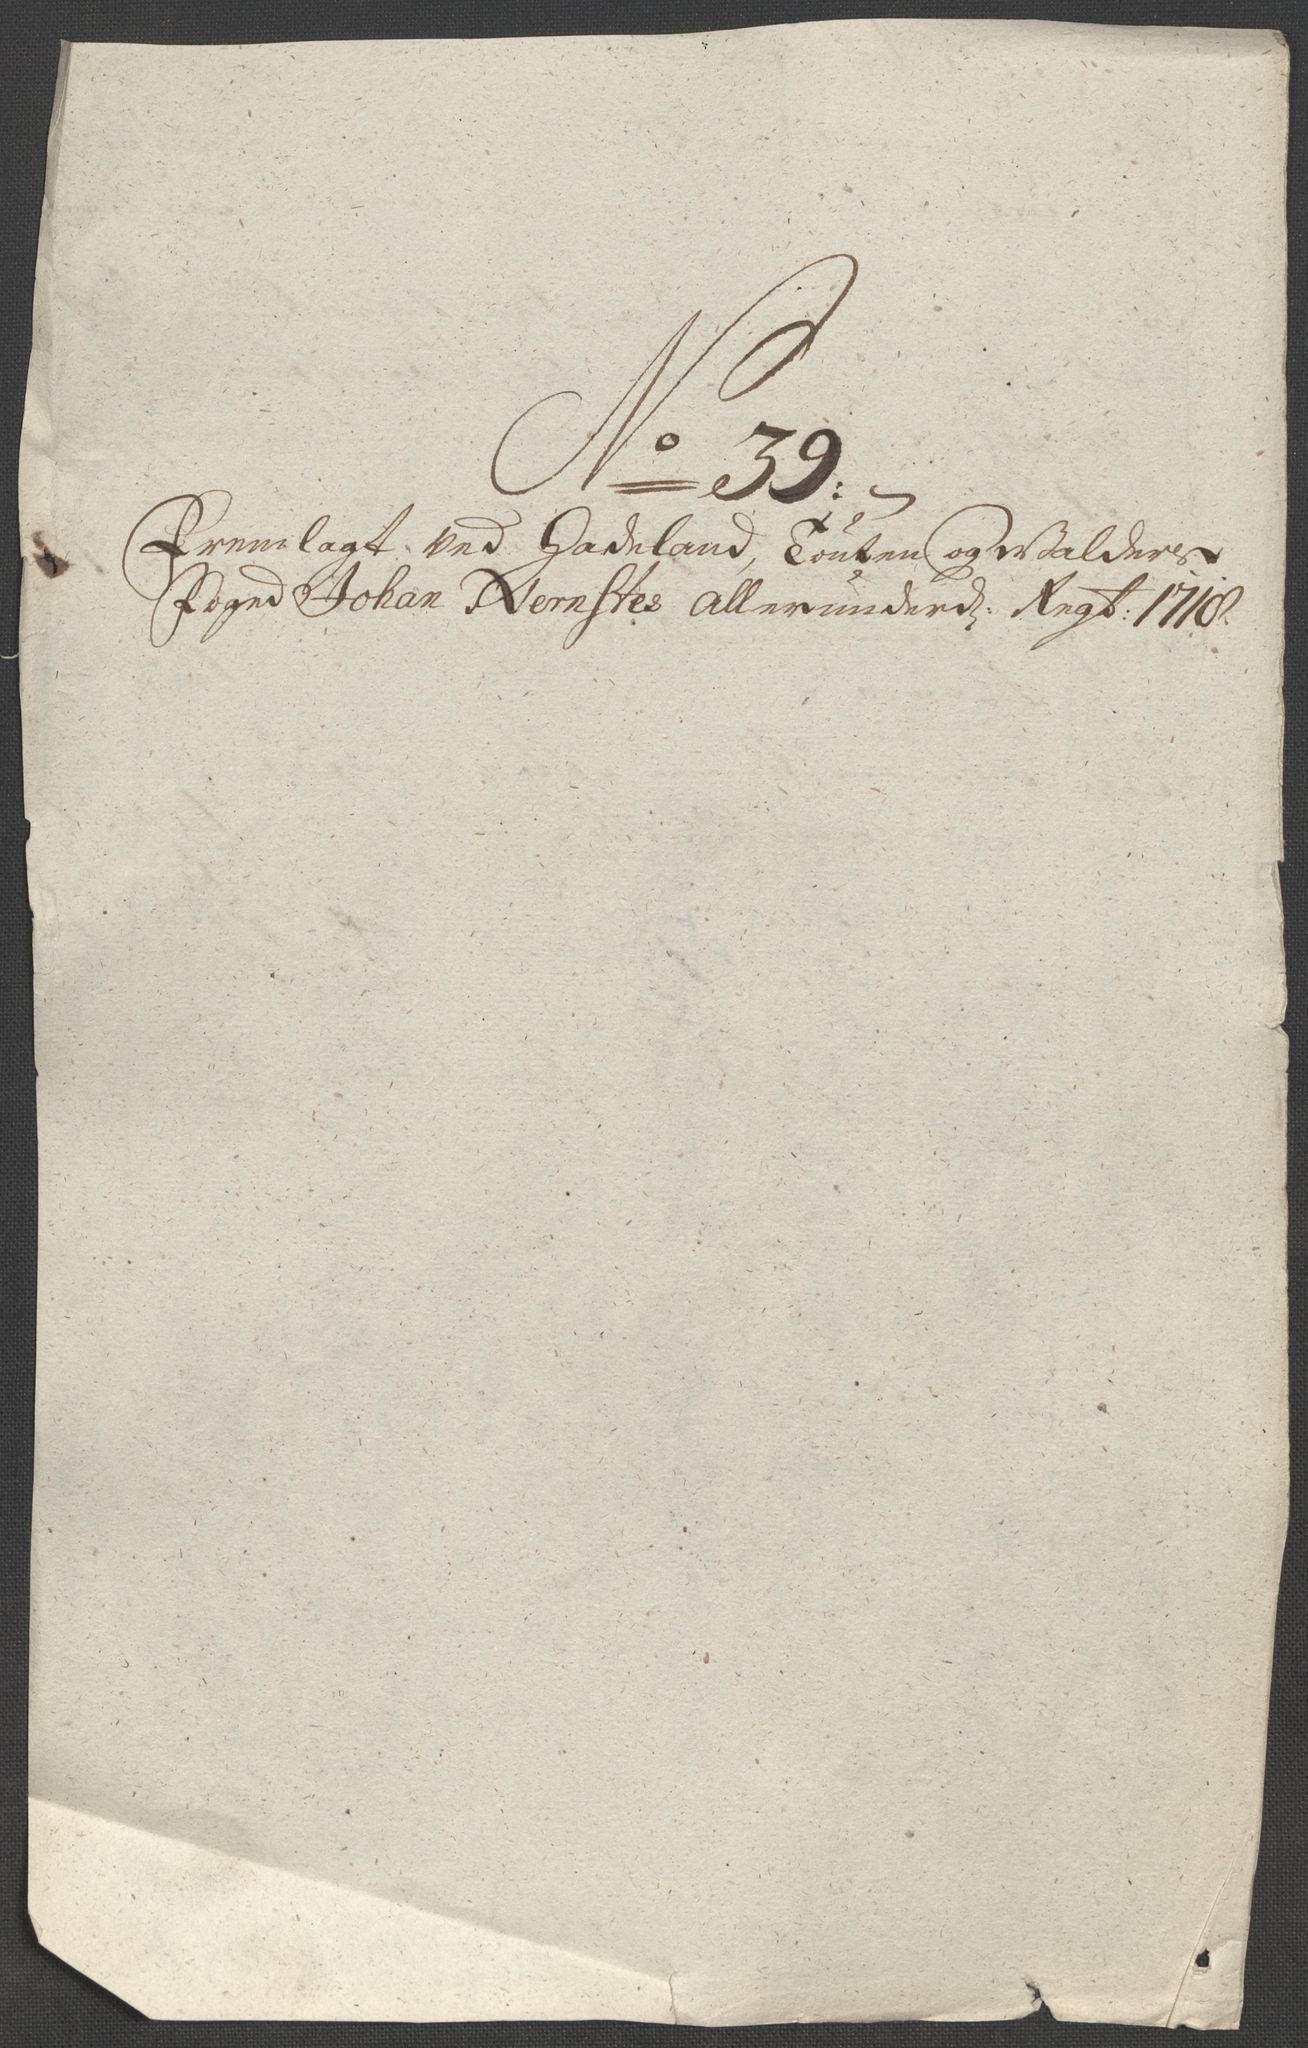 No 39:
Fremlagt ved Hadeland, Touten og Walders
Foged Johan Nernstes allerunderd: Regt: 1718